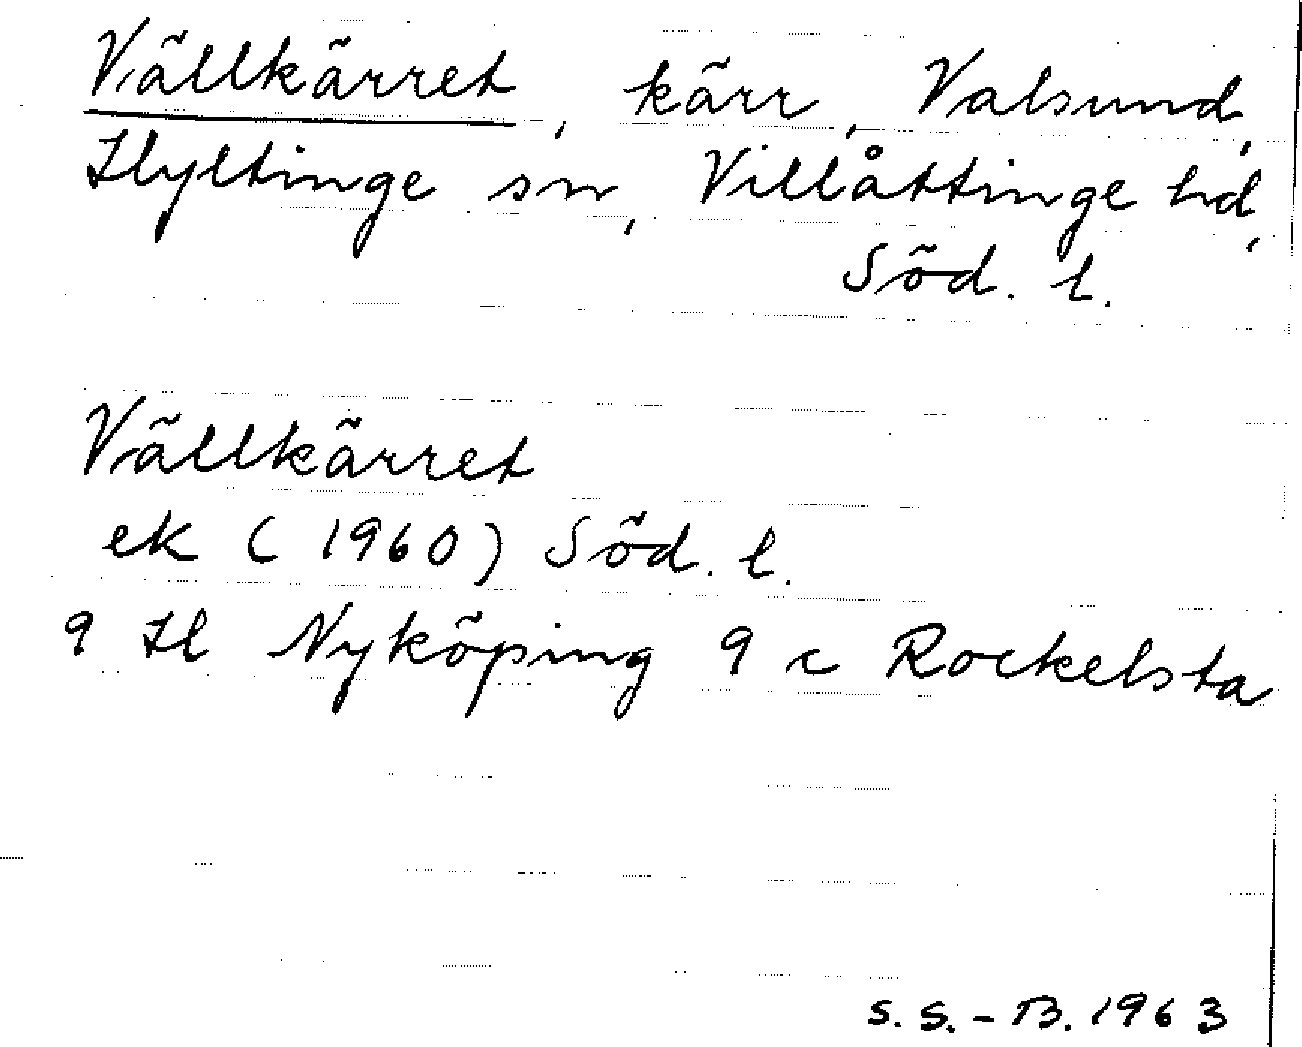 Vällkärret, kärr, Valsund,
Hyltinge sn, Villåttinge hd,
Söd. l.
Vällkärret
ek (1960) Söd. l.
9 H Nyköping 9 c Rockelsta
S. S. - B. 1963